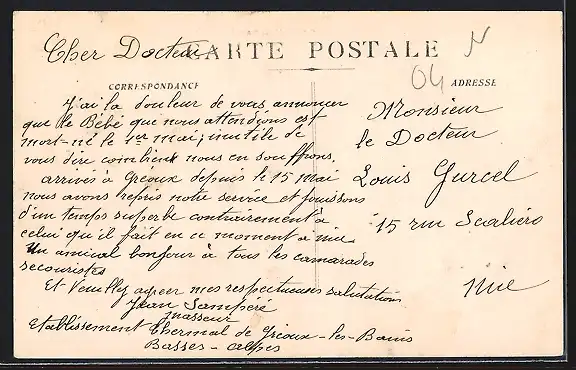 Cher Docteur
CARTE POSTALE
04
CORRESPONDANCE
J'ai la douleur de vous annoncer
que le Bébé que nous attendions est
mort-né le 1er mai, inutile de
vous dire combient nous en souffrons.
arrivés à Gréoux depuis le 15 mai
nous avons repris notre service et jouissons
d'un temps superbe contrairement à
celui qu'il fait en ce moment à nice
Un amical bonjour à tous les camarades
secouristes
Et Veuillez agréer mes respectueuses salutations
Jean Sampéré
masseur
Etablissement Thermal de Gréoux-les-Bains
Basses-alpes
ADRESSE
Monsieur
le Docteur
Louis Gurcel
15 rue Scaliéro
Nice